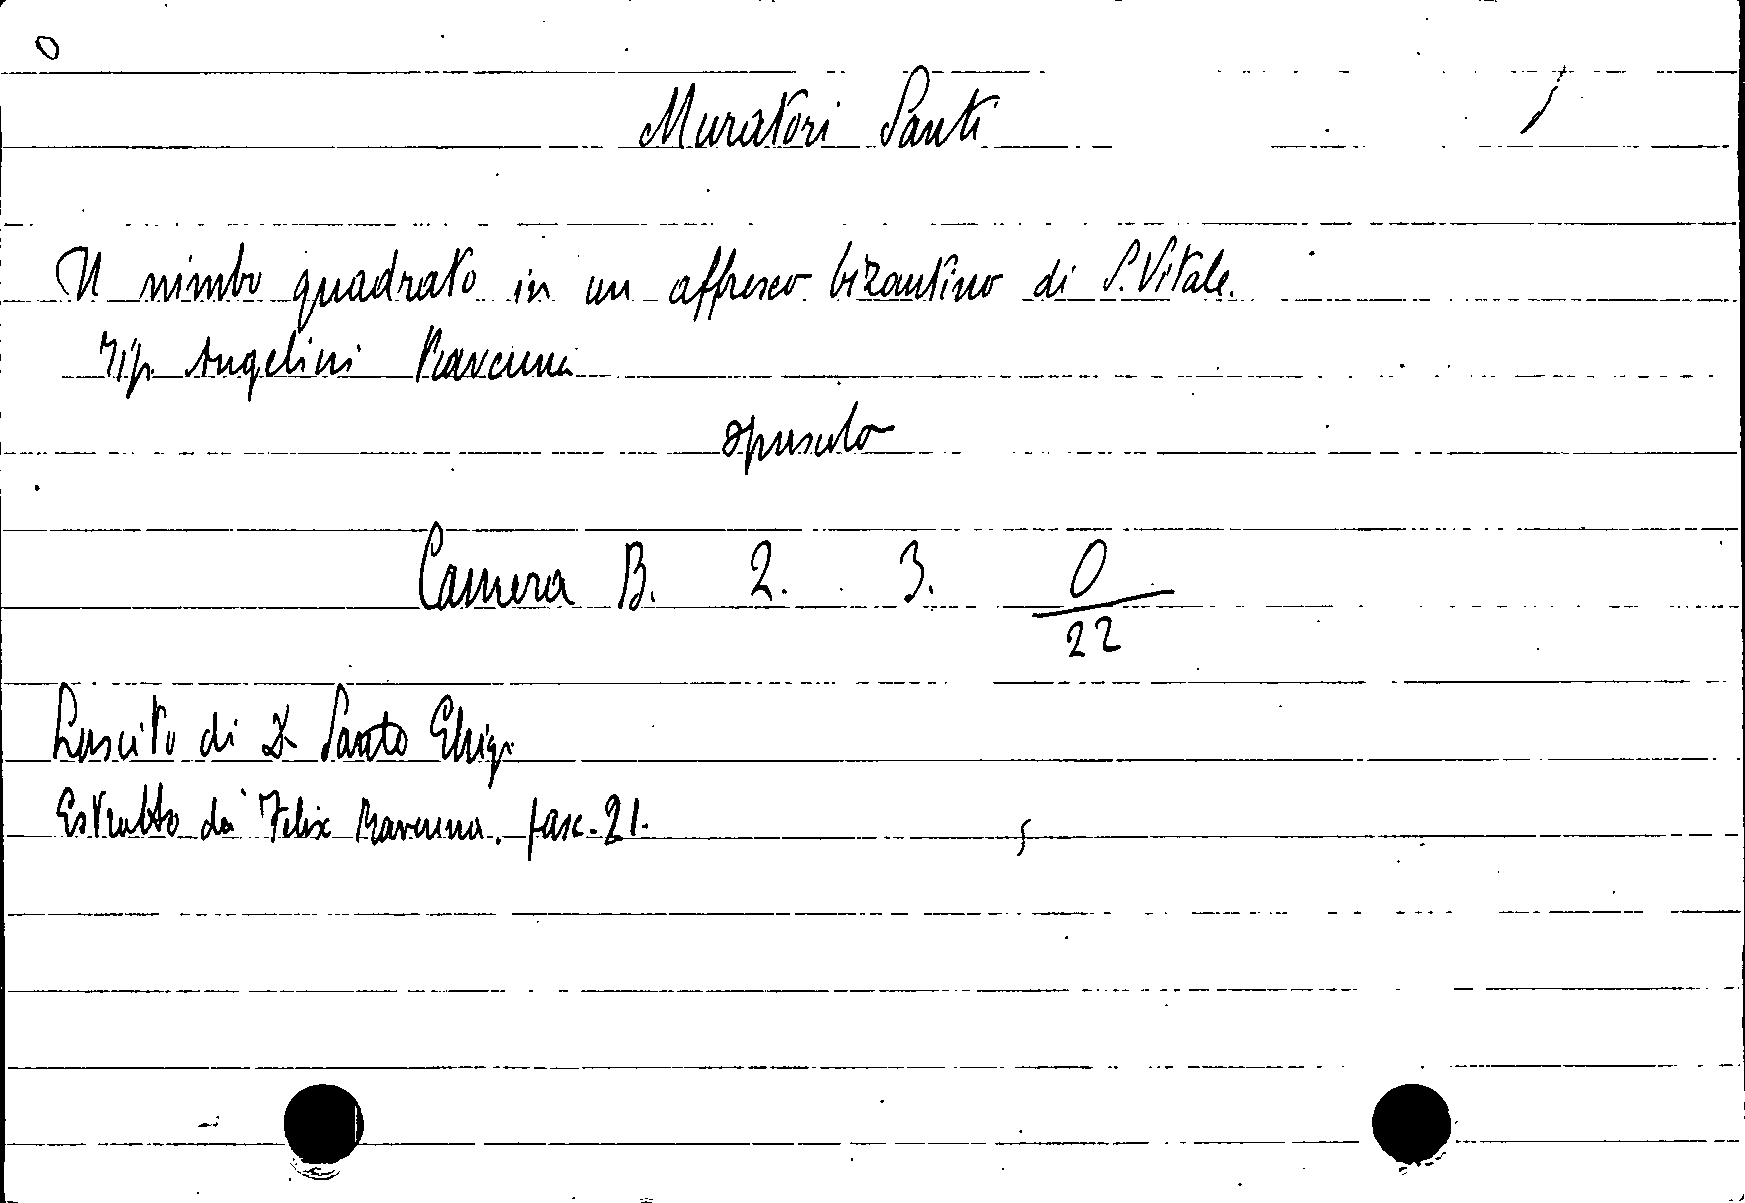 O
Muratori Santi
Il nimbo quadrato in un affresco bizantino di S. Vitale.
Tip. Angelini Ravenna
opuscolo
Camera B. 2. 3. O
22
Lascito di D. Santo Ghigi
Estratto da Felix Ravenna. fasc. 21.